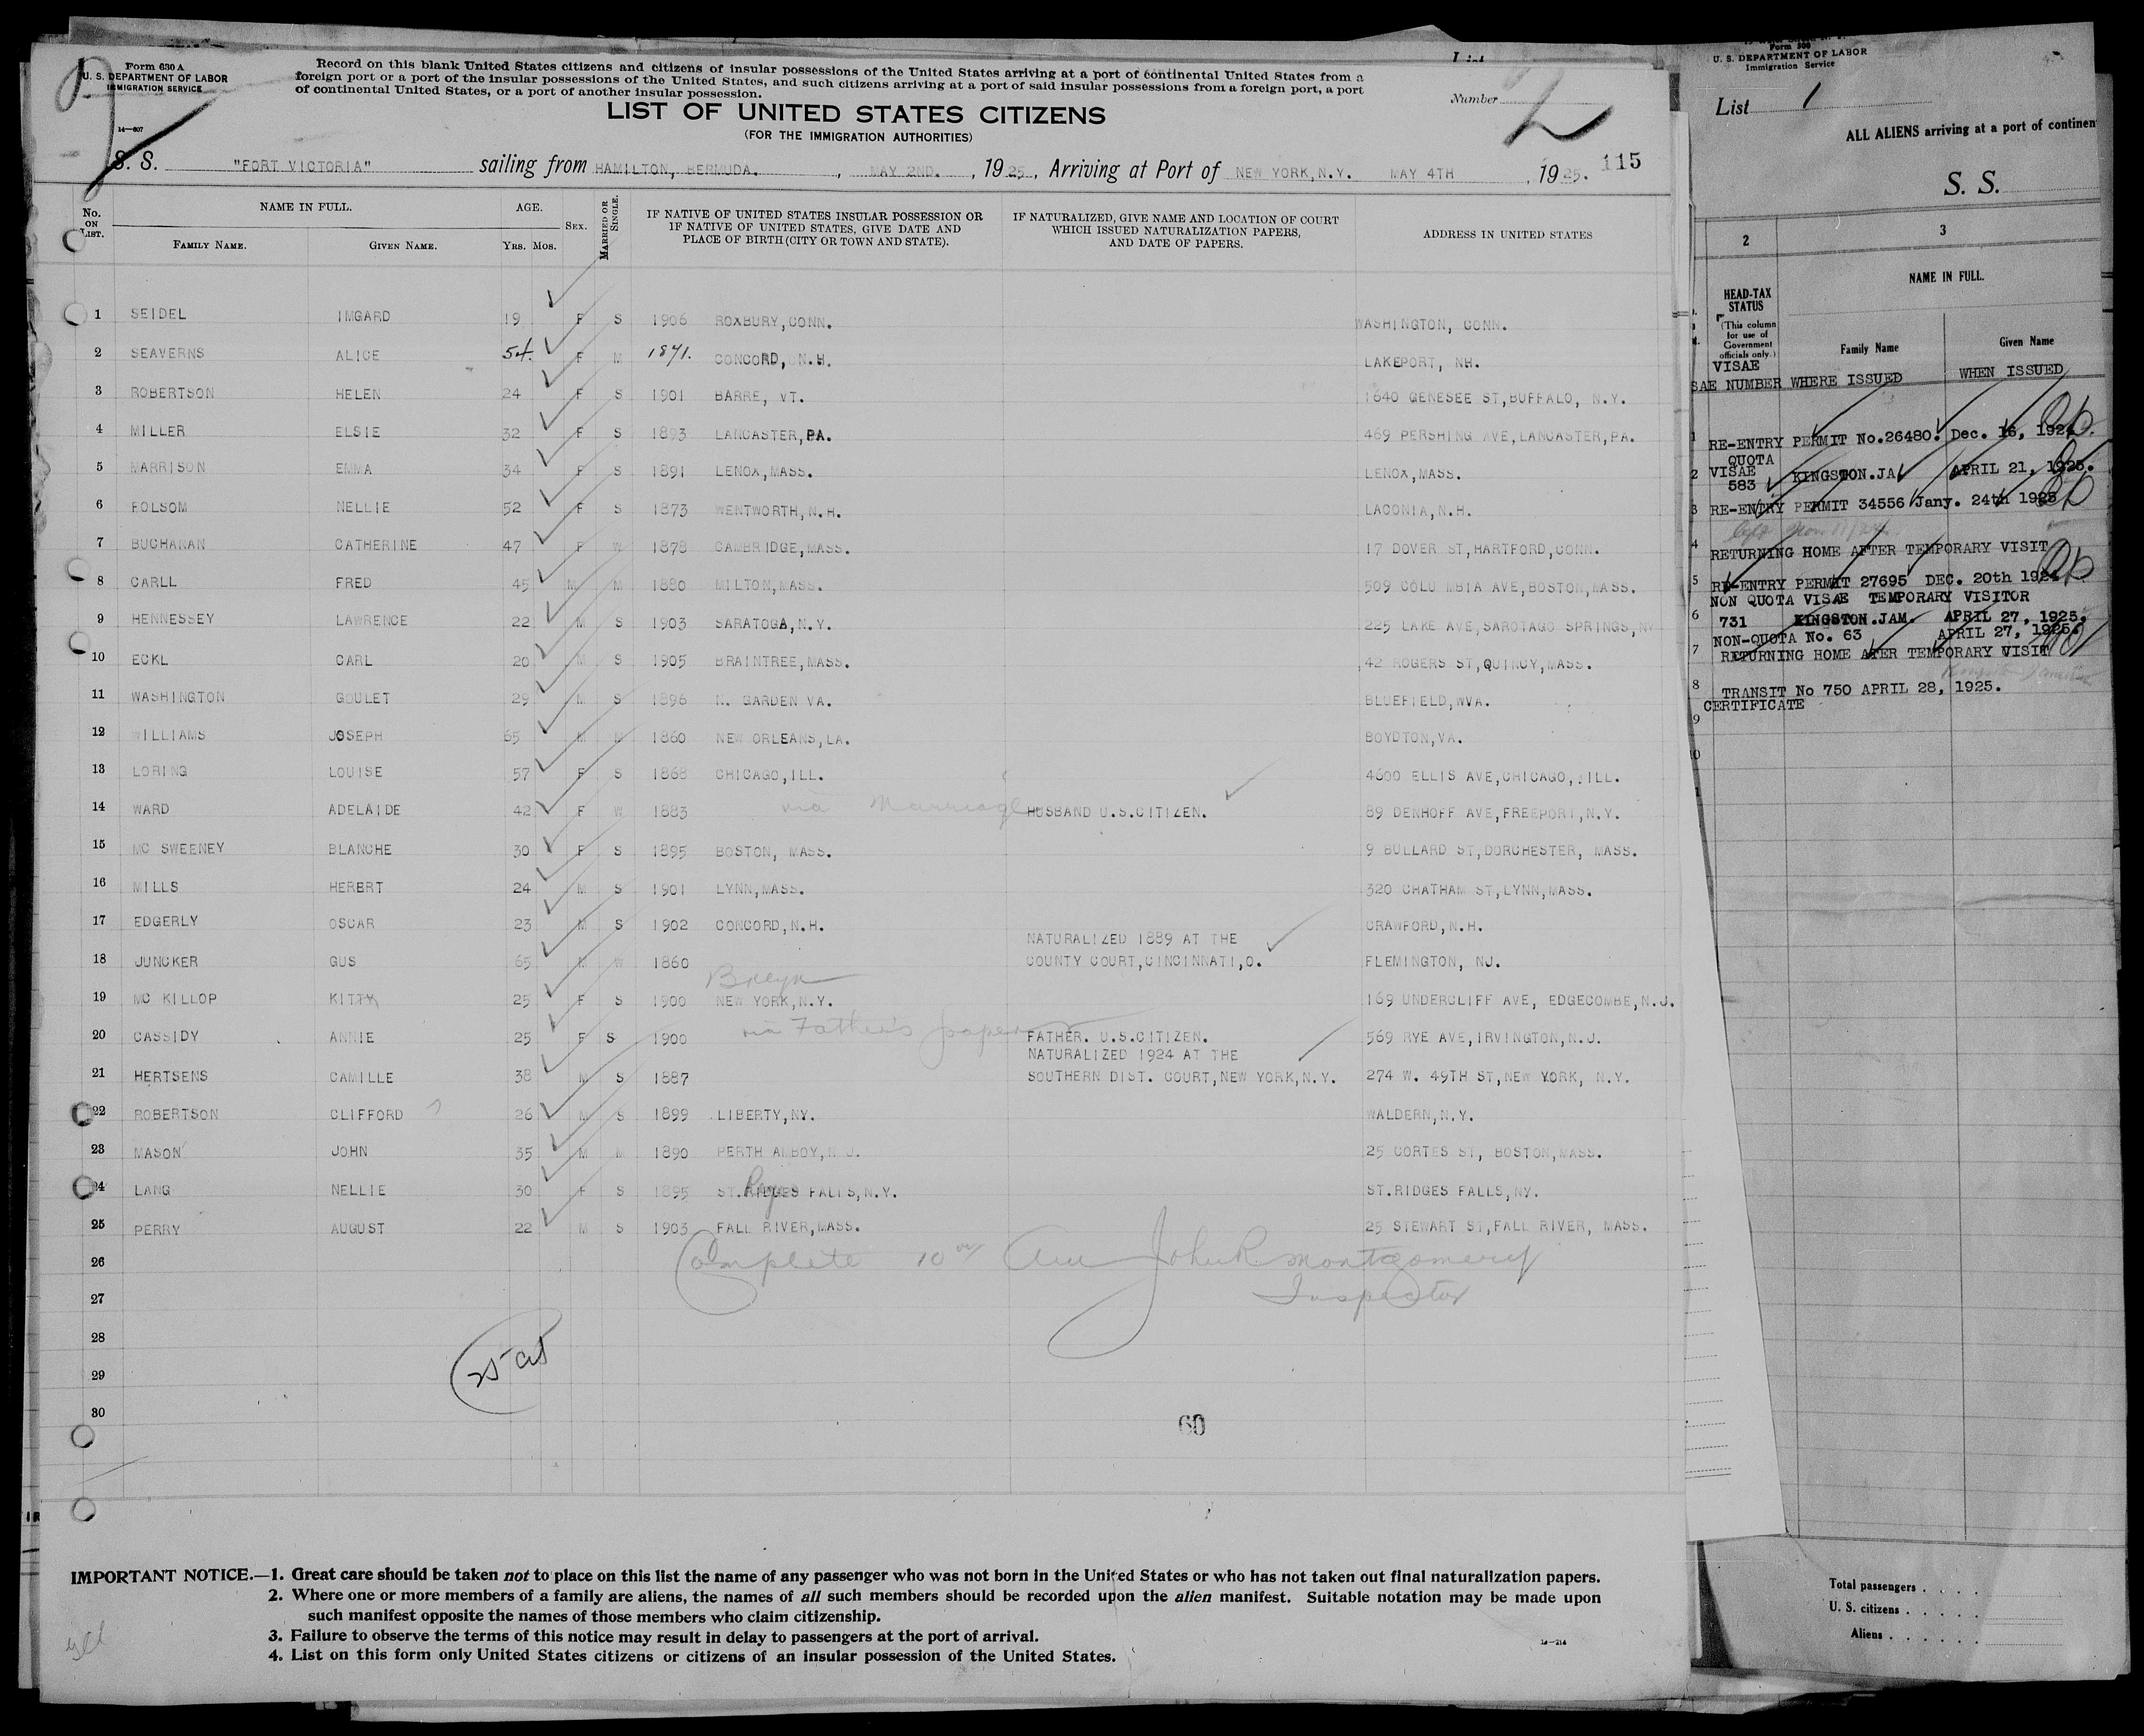 Form 630 A
U. S. DEPARTMENT OF LABOR
IMMIGRATION SERVICE
14—607
Record on this blank United States citizens and citizens of insular possessions of the United States arriving at a port of continental United States from a
foreign port or a port of the insular possessions of the United States, and such citizens arriving at a port of said insular possessions from a foreign port, a port
of continental United States, or a port of another insular possession.
LIST OF UNITED STATES CITIZENS
(FOR THE IMMIGRATION AUTHORITIES)
Number 2
S. S. "FORT VICTORIA" sailing from HAMILTON, BERMUDA. , MAY 2ND. , 1925, Arriving at Port of NEW YORK,N.Y. MAY 4TH , 1925. 115
No. ON LIST. NAME IN FULL. AGE. SEX. MARRIED OR SINGLE. IF NATIVE OF UNITED STATES INSULAR POSSESSION OR IF NATIVE OF UNITED STATES, GIVE DATE AND PLACE OF BIRTH (CITY OR TOWN AND STATE). IF NATURALIZED, GIVE NAME AND LOCATION OF COURT WHICH ISSUED NATURALIZATION PAPERS, AND DATE OF PAPERS. ADDRESS IN UNITED STATES
FAMILY NAME. GIVEN NAME. YRS. MOS.
1 SEIDEL IMGARD 19 F S 1906 ROXBURY,CONN. WASHINGTON, CONN.
2 SEAVERNS ALICE 54. F M 1871. CONCORD, N.H. LAKEPORT, NH.
3 ROBERTSON HELEN 24 F S 1901 BARRE, VT. 1640 GENESEE ST,BUFFALO, N.Y.
4 MILLER ELSIE 32 F S 1893 LANCASTER,PA. 469 PERSHING AVE,LANCASTER,PA.
5 MARRISON EMMA 34 F S 1891 LENOX,MASS. LENOX,MASS.
6 FOLSOM NELLIE 52 F S 1873 WENTWORTH,N.H. LACONIA,N.H.
7 BUCHANAN CATHERINE 47 F W 1878 CAMBRIDGE,MASS. 17 DOVER ST,HARTFORD,CONN.
8 CARLL FRED 45 M M 1880 MILTON,MASS. 509 COLU MBIA AVE,BOSTON,MASS.
9 HENNESSEY LAWRENCE 22 M S 1903 SARATOGA,N.Y. 225 LAKE AVE,SAROTAGO SPRINGS,NY
10 ECKL CARL 20 M S 1905 BRAINTREE,MASS. 42 ROGERS ST,QUINCY,MASS.
11 WASHINGTON GOULET 29 M S 1896 N. GARDEN VA. BLUEFIELD,WVA.
12 WILLIAMS JOSEPH 65 M M 1860 NEW ORLEANS,LA. BOYDTON,VA.
13 LORING LOUISE 57 F S 1868 CHICAGO,ILL. 4600 ELLIS AVE,CHICAGO,ILL.
14 WARD ADELAIDE 42 F W 1883 via Marriage HUSBAND U.S.CITIZEN. 89 DENHOFF AVE,FREEPORT,N.Y.
15 MC SWEENEY BLANCHE 30 F S 1895 BOSTON, MASS. 9 BULLARD ST,DORCHESTER, MASS.
16 MILLS HERBRT 24 M S 1901 LYNN,MASS. 320 CHATHAM ST,LYNN,MASS.
17 EDGERLY OSCAR 23 M S 1902 CONCORD,N.H. CRAWFORD,N.H.
NATURALIZED 1889 AT THE
18 JUNCKER GUS 65 M W 1860 COUNTY COURT,CINCINNATI,O. FLEMINGTON, NJ.
19 MC KILLOP KITTY 25 F S 1900 NEW YORK,N.Y. 169 UNDERCLIFF AVE, EDGECOMBE,N.J.
20 CASSIDY ANNIE 25 F S 1900 via Father's papers FATHER. U.S.CITIZEN. 569 RYE AVE,IRVINGTON,N.J.
NATURALIZED 1924 AT THE
21 HERTSENS CAMILLE 38 M S 1887 SOUTHERN DIST. COURT,NEW YORK,N.Y. 274 W. 49TH ST,NEW YORK, N.Y.
22 ROBERTSON CLIFFORD 26 M S 1899 LIBERTY,NY. WALDERN,N.Y.
23 MASON JOHN 35 M M 1890 PERTH AMBOY,N.J. 25 CORTES ST, BOSTON,MASS.
24 LANG NELLIE 30 F S 1895 ST.RIDGES FALLS,N.Y. ST.RIDGES FALLS,NY.
25 PERRY AUGUST 22 M S 1903 FALL RIVER,MASS. 25 STEWART ST,FALL RIVER, MASS.
26 Complete John R Montgomery
27 Inspector
28
29
30
60
IMPORTANT NOTICE.—1. Great care should be taken not to place on this list the name of any passenger who was not born in the United States or who has not taken out final naturalization papers.
2. Where one or more members of a family are aliens, the names of all such members should be recorded upon the alien manifest. Suitable notation may be made upon
such manifest opposite the names of those members who claim citizenship.
3. Failure to observe the terms of this notice may result in delay to passengers at the port of arrival.
4. List on this form only United States citizens or citizens of an insular possession of the United States.
14—214
Form 500
U. S. DEPARTMENT OF LABOR
Immigration Service
List 1
ALL ALIENS arriving at a port of continen
S. S.
2 3
HEAD-TAX STATUS
(This column for use of Government officials only.)
NAME IN FULL.
Family Name Given Name
VISAE
SAE NUMBER WHERE ISSUED WHEN ISSUED
1 RE-ENTRY PERMIT No.26480. Dec. 16, 1924.
QUOTA
2 VISAE KINGSTON.JA APRIL 21, 1925.
583
3 RE-ENTRY PERMIT 34556 Jany. 24th 1925
4 RETURNING HOME AFTER TEMPORARY VISIT
5 RE-ENTRY PERMIT 27695 DEC. 20th 1924
NON QUOTA VISAE TEMPORARY VISITOR
6 731 KINGSTON.JAM. APRIL 27, 1925.
NON-QUOTA No. 63 APRIL 27, 1925.
7 RETURNING HOME ATER TEMPORARY VISIT
8 TRANSIT No 750 APRIL 28, 1925.
CERTIFICATE
9
Total passengers . . . .
U. S. citizens . . . . .
Aliens . . . . . .